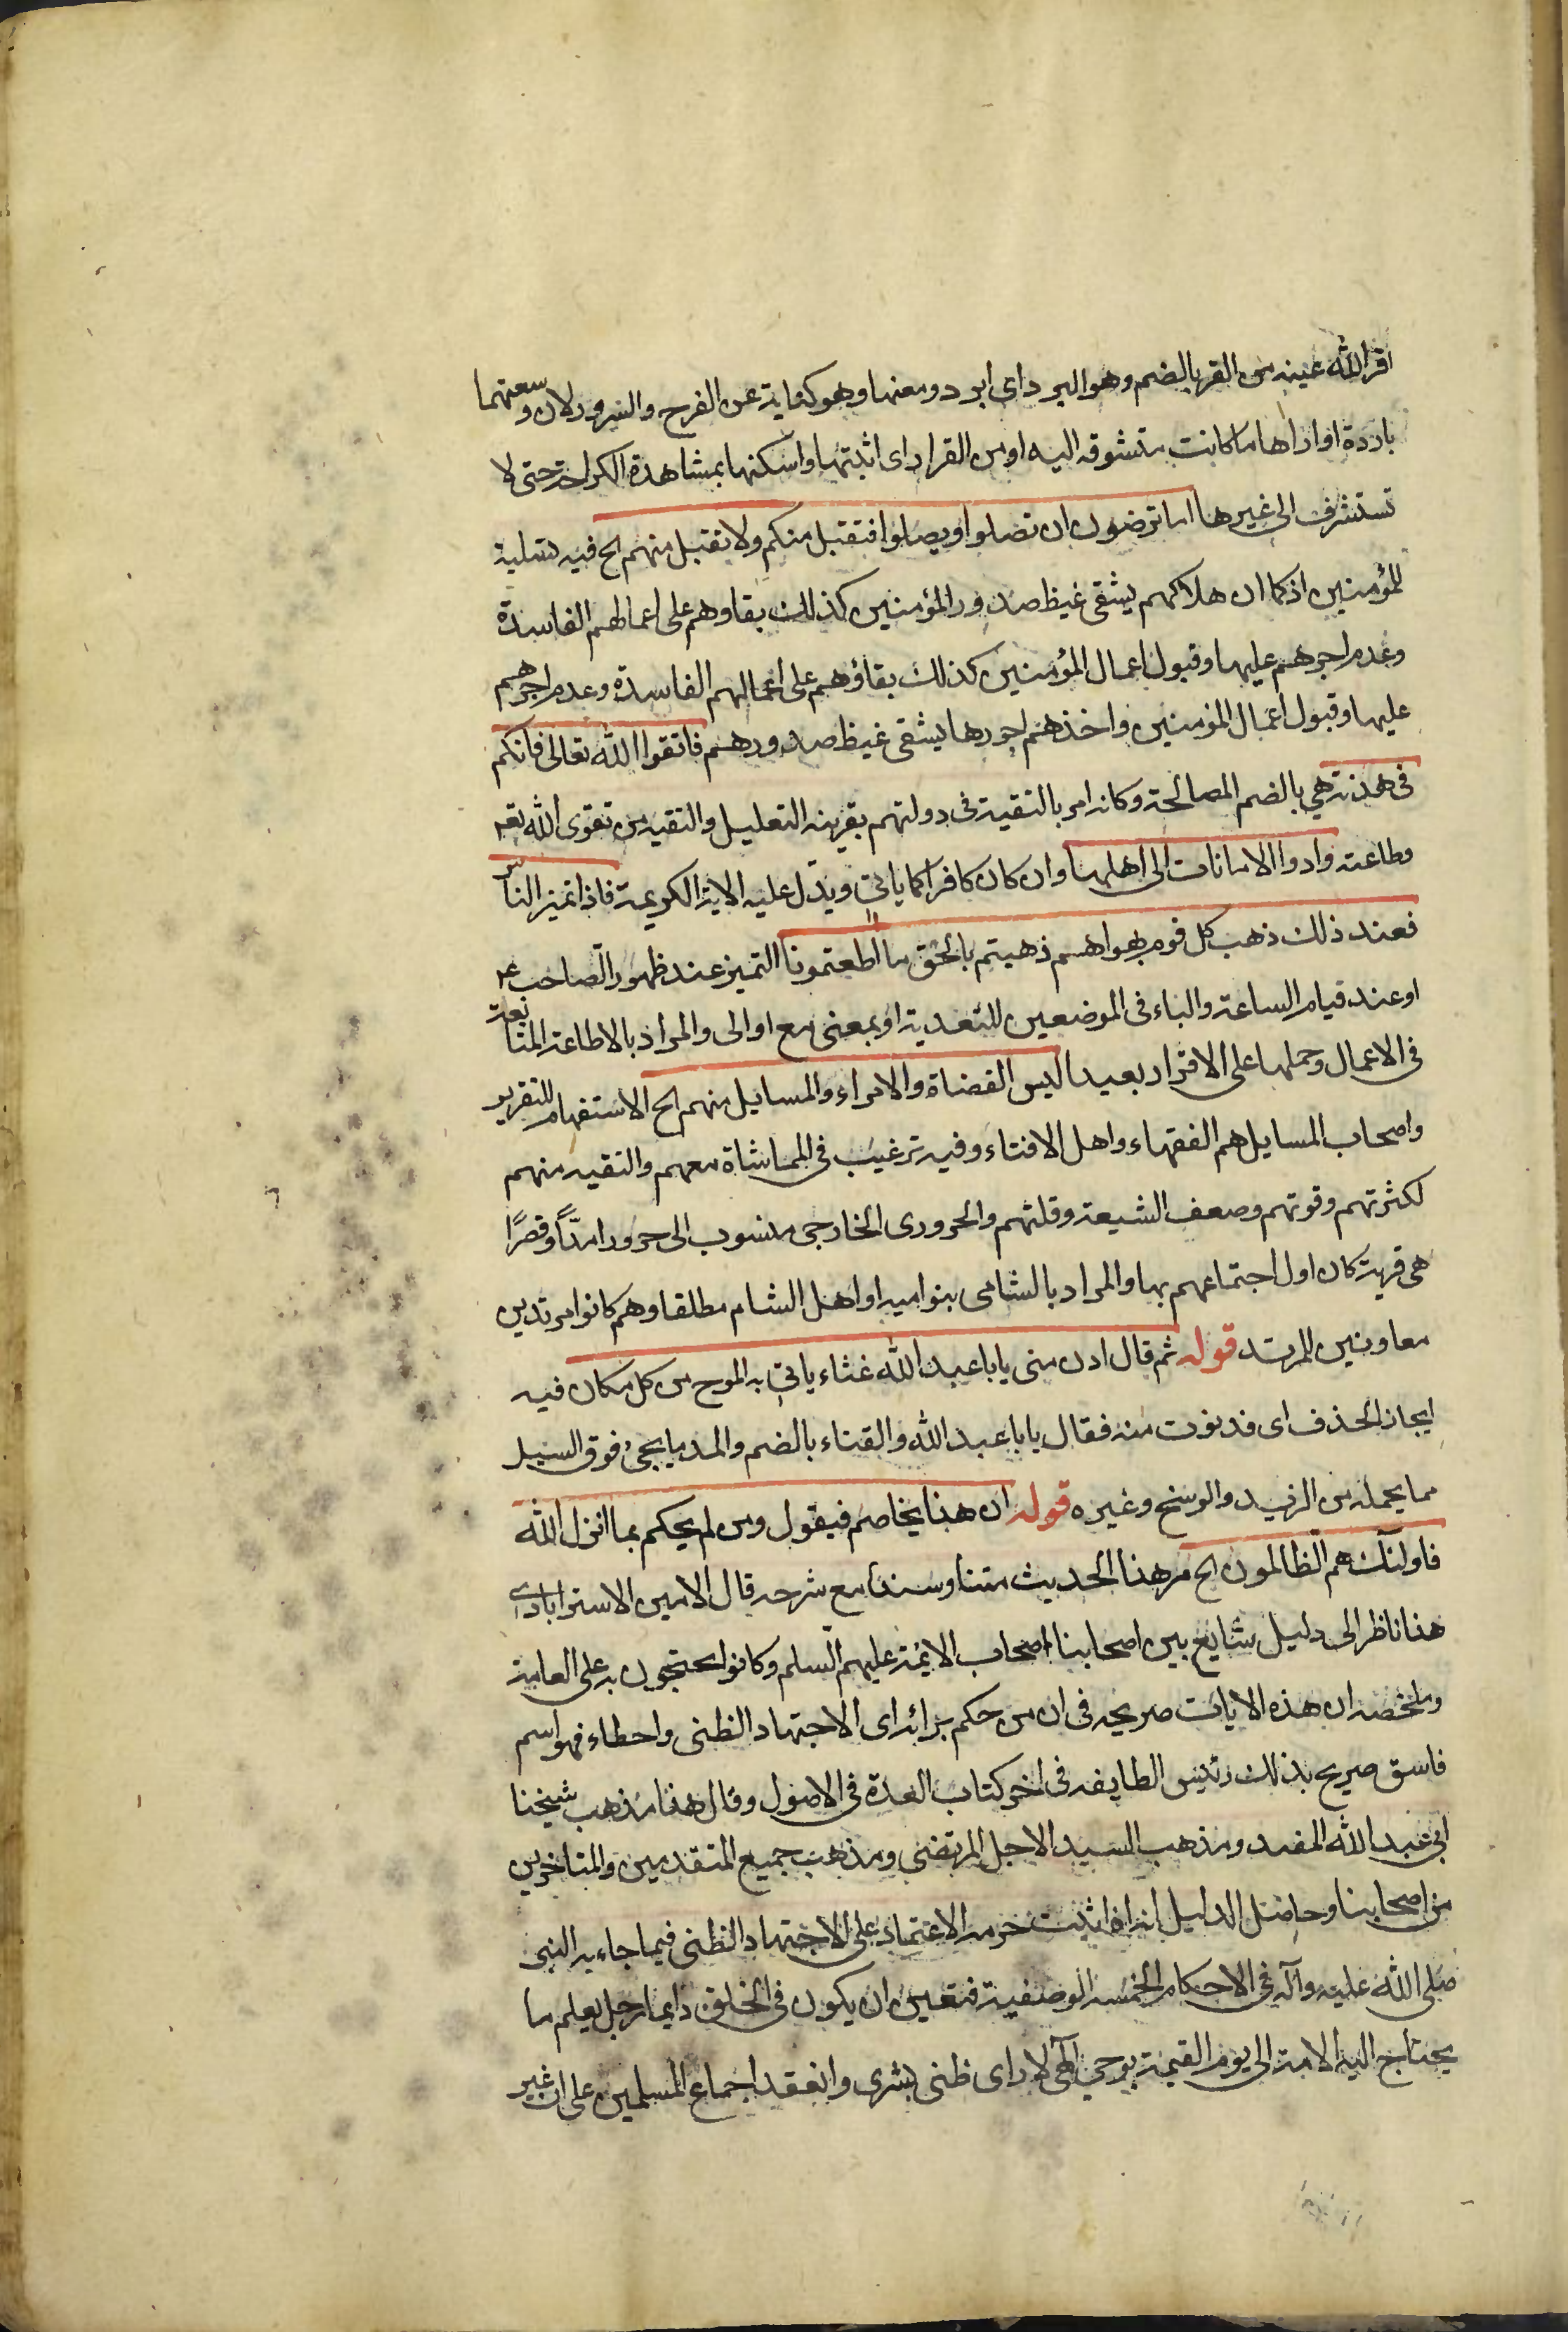 اقر الله عينه من القر بالضم وهو البرد اى ابرد ومعنها وهو كناية عن الفرح والسرور لان ومعتهما
باردة او اراها ما كانت متشوقه اليه او من القرار اى اثبتها واسكنها بمشاهدة الكرامة حتى لا
تستشرف الى غيرها اما ترضون ان تصلوا ويصلوا فتقبل منكم ولا يقبل منهم الح فيه تسلية
للمؤمنين اذ كما ان هلاكهم يشفى غيظ صدور المؤمنين كذلك بقاوهم على اعمالهم الفاسدة
وعدم اجرهم عليها وقبول اعمال المؤمنين كذلك بقاؤهم على اعمالهم الفاسدة وعدم اجرهم
عليها وقبول اعمال المؤمنين واخذهم اجورها يشفى غيظ صدورهم فاتقوا الله تعالى فانكم
فى هدنة هي بالضم المصالحة وكانه امر بالتقية فى دولتهم بقرينه التعليل والتقيه من تقوى الله تعه
وطاعته وادوا الامانات الى اهلها وان كان كافرا كما ياتي ويدل عليه الاية الكريمة فاذا تميز الناس
فعند ذلك ذهب كل قوم بهواهم ذهبتم بالحق ما اطعتمونا التميز عند ظهور الصاحب عه
او عند قيام الساعة والباء فى الموضعين للتعدية او بمعنى مع او الى والمراد بالاطاعة المتابعة
فى الاعمال وحملها على الاقرار بعيد اليس القضاة والامراء والمسايل منهم الح الاستفهام للتقرير
واصحاب المسايل هم الفقهاء واهل الافتاء وفيه ترغيب فى المماشاة معهم والتقيه منهم
لكثرتهم وقوتهم وضعف الشيعة وقلتهم والحرورى الخارجى منسوب الى حرورا مدّاً وقصرًا
هى قرية كان اول اجتماعهم بها والمراد بالشامى بنوا ميه او اهل الشام مطلقا وهم كانوا مرتدين
معاونين للمرتد قوله ثم قال ادن منى يابا عبد الله غثاء ياتي به الموج من كل مكان فيه
ايجاز الحذف اى فدنوت منه فقال يابا عبد الله والقثاء بالضم والمد ما يجئ فوق السيل
مما يحمله من الزبد والوسخ وغيره قوله ان هذا يخاصم فيقول ومن لم يحكم بما انزل الله
فاولئك هم الظالمون الح مر هذا الحديث متنا وسندا مع شرحه قال الامين الاسترابادى
هذا ناظر الى دليل شايع بين اصحابنا اصحاب الائمة عليهم السلم وكانوا يحتجون به على العامة
وملخصه ان هذه الايات صريحه فى ان من حكم برائه اى الاجتهاد الظنى واخطاء فهو اسم
فاسق صريح بذلك رئيس الطايفه فى اخر كتاب العدة فى الاصول وقال هذا مذهب شيخنا
ابى عبد الله المفيد ومذهب السيد الاجل المرتضى ومذهب جميع المتقدمين والمتاخرين
من اصحابنا وحاصل الدليل انه اذا ثبت حرمه الاعتماد على الاجتهاد الظنى فيما جاء به النبى
صلى الله عليه وآله فى الاحكام الخمسه الوصفية فتعين ان يكون فى الخلق دايما رجل يعلم ما
يحتاج اليه الامة الى يوم القيمة بوحي الهي لا راى ظنى بشرى وانعقد اجماع المسلمين على ان غير